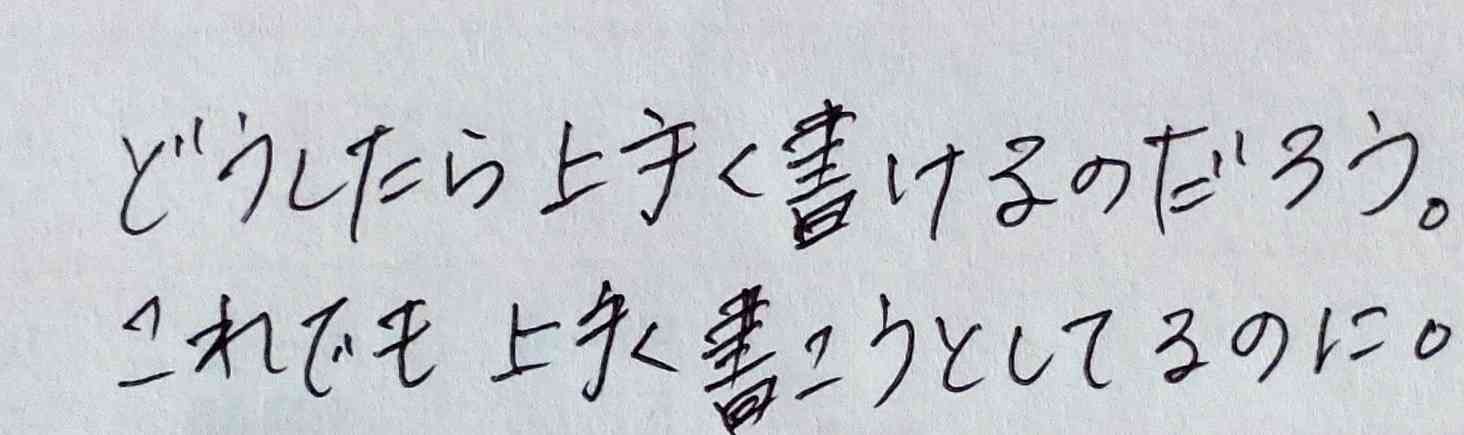 どうしたら上手く書けるのだろう。
これでも上手く書こうとしてるのに。